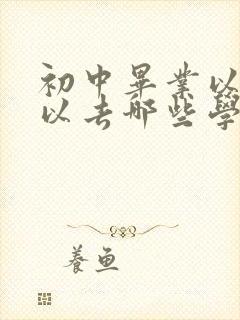 初中畢業以
以去哪些學
養魚